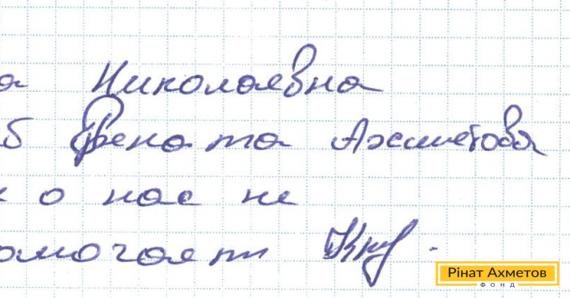 а Николаевна
б Рената Ахметова
о нас не
омогает
Рінат Ахметов
ФОНД